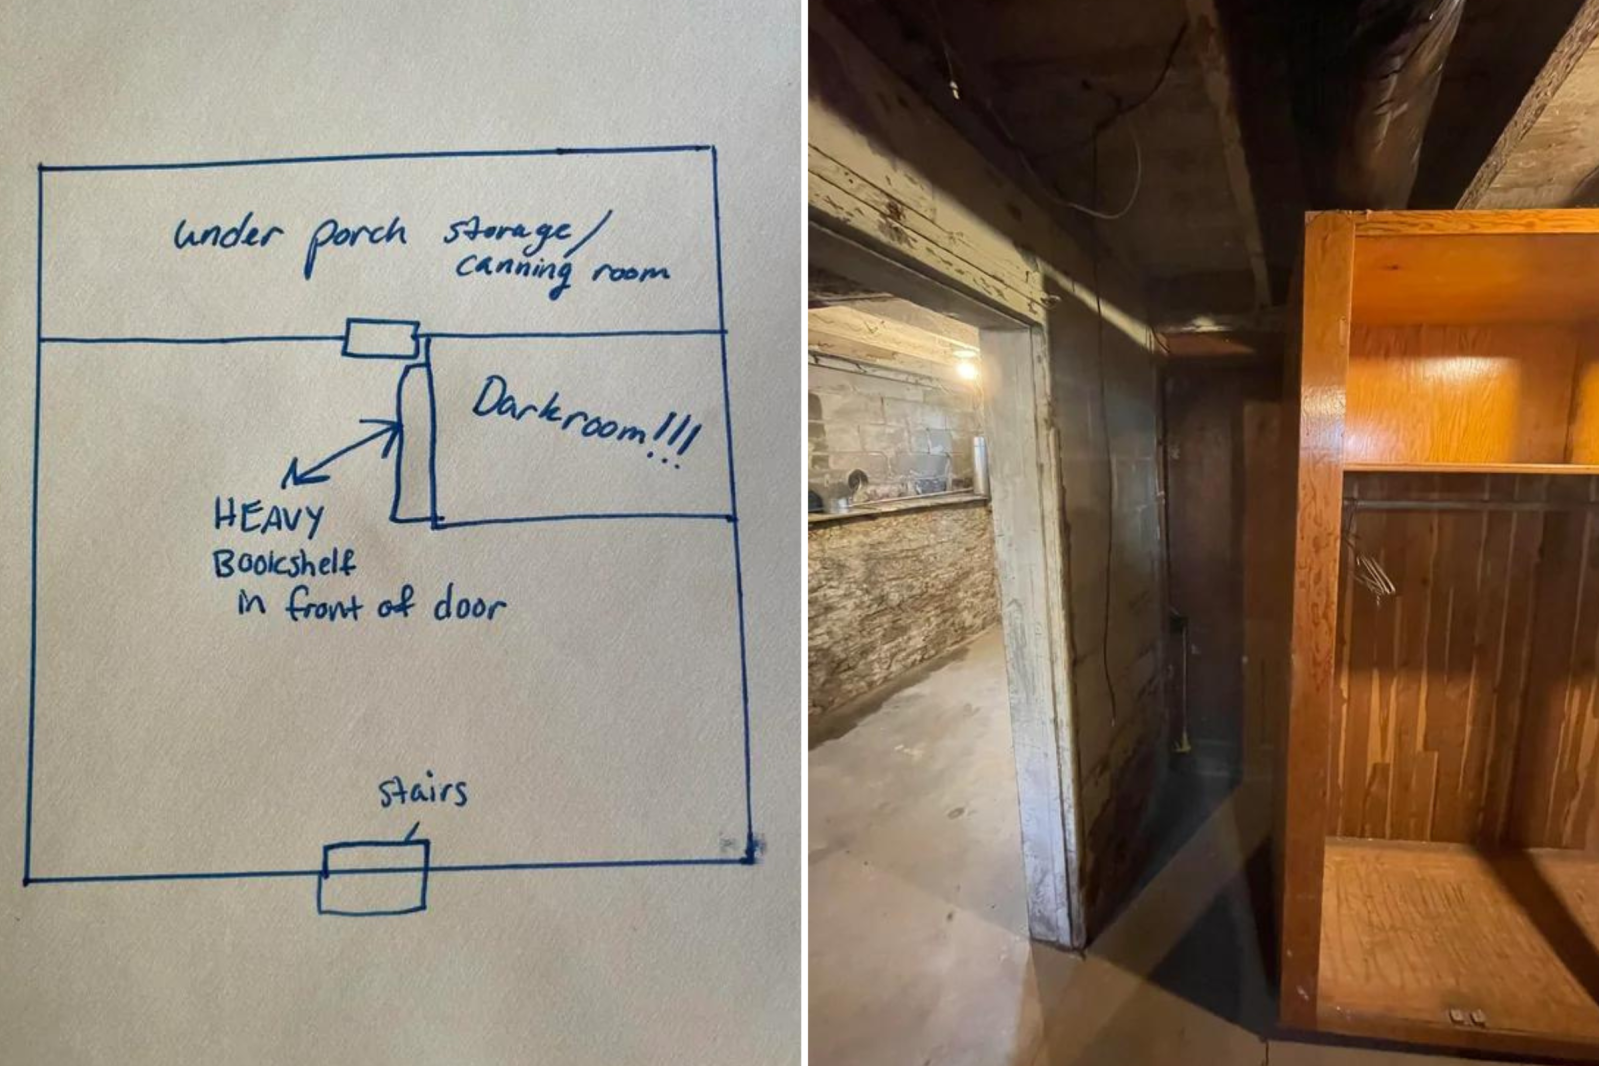 under porch storage/
canning room
Darkroom!!!
HEAVY
Bookshelf
in front of door
stairs